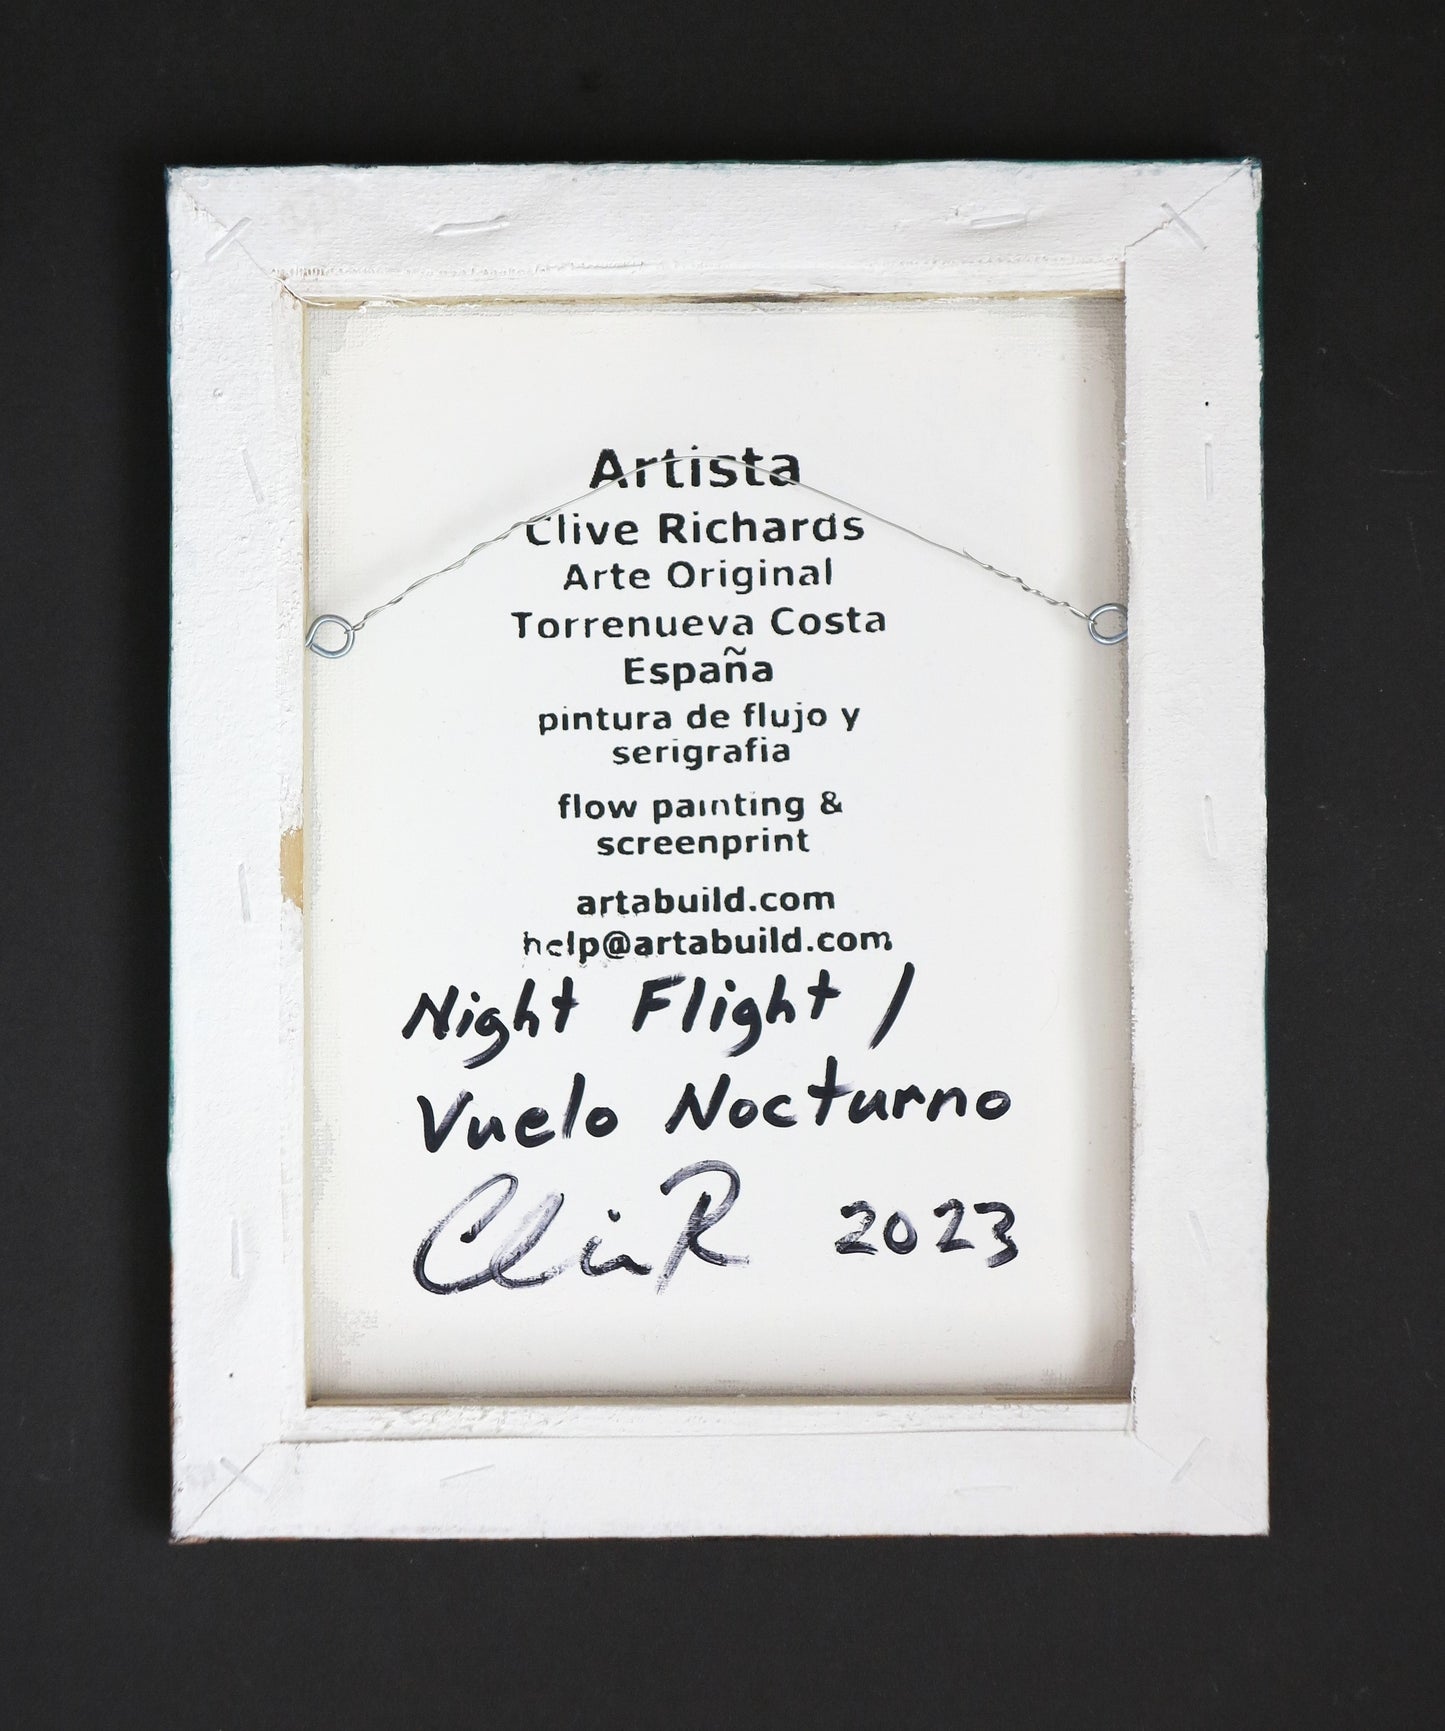 Artista
Clive Richards
Arte Original
Torrenueva Costa
España
pintura de flujo y
serigrafia
flow painting &
screenprint
artabuild.com
help@artabuild.com
Night Flight /
Vuelo Nocturno
Clive R 2023